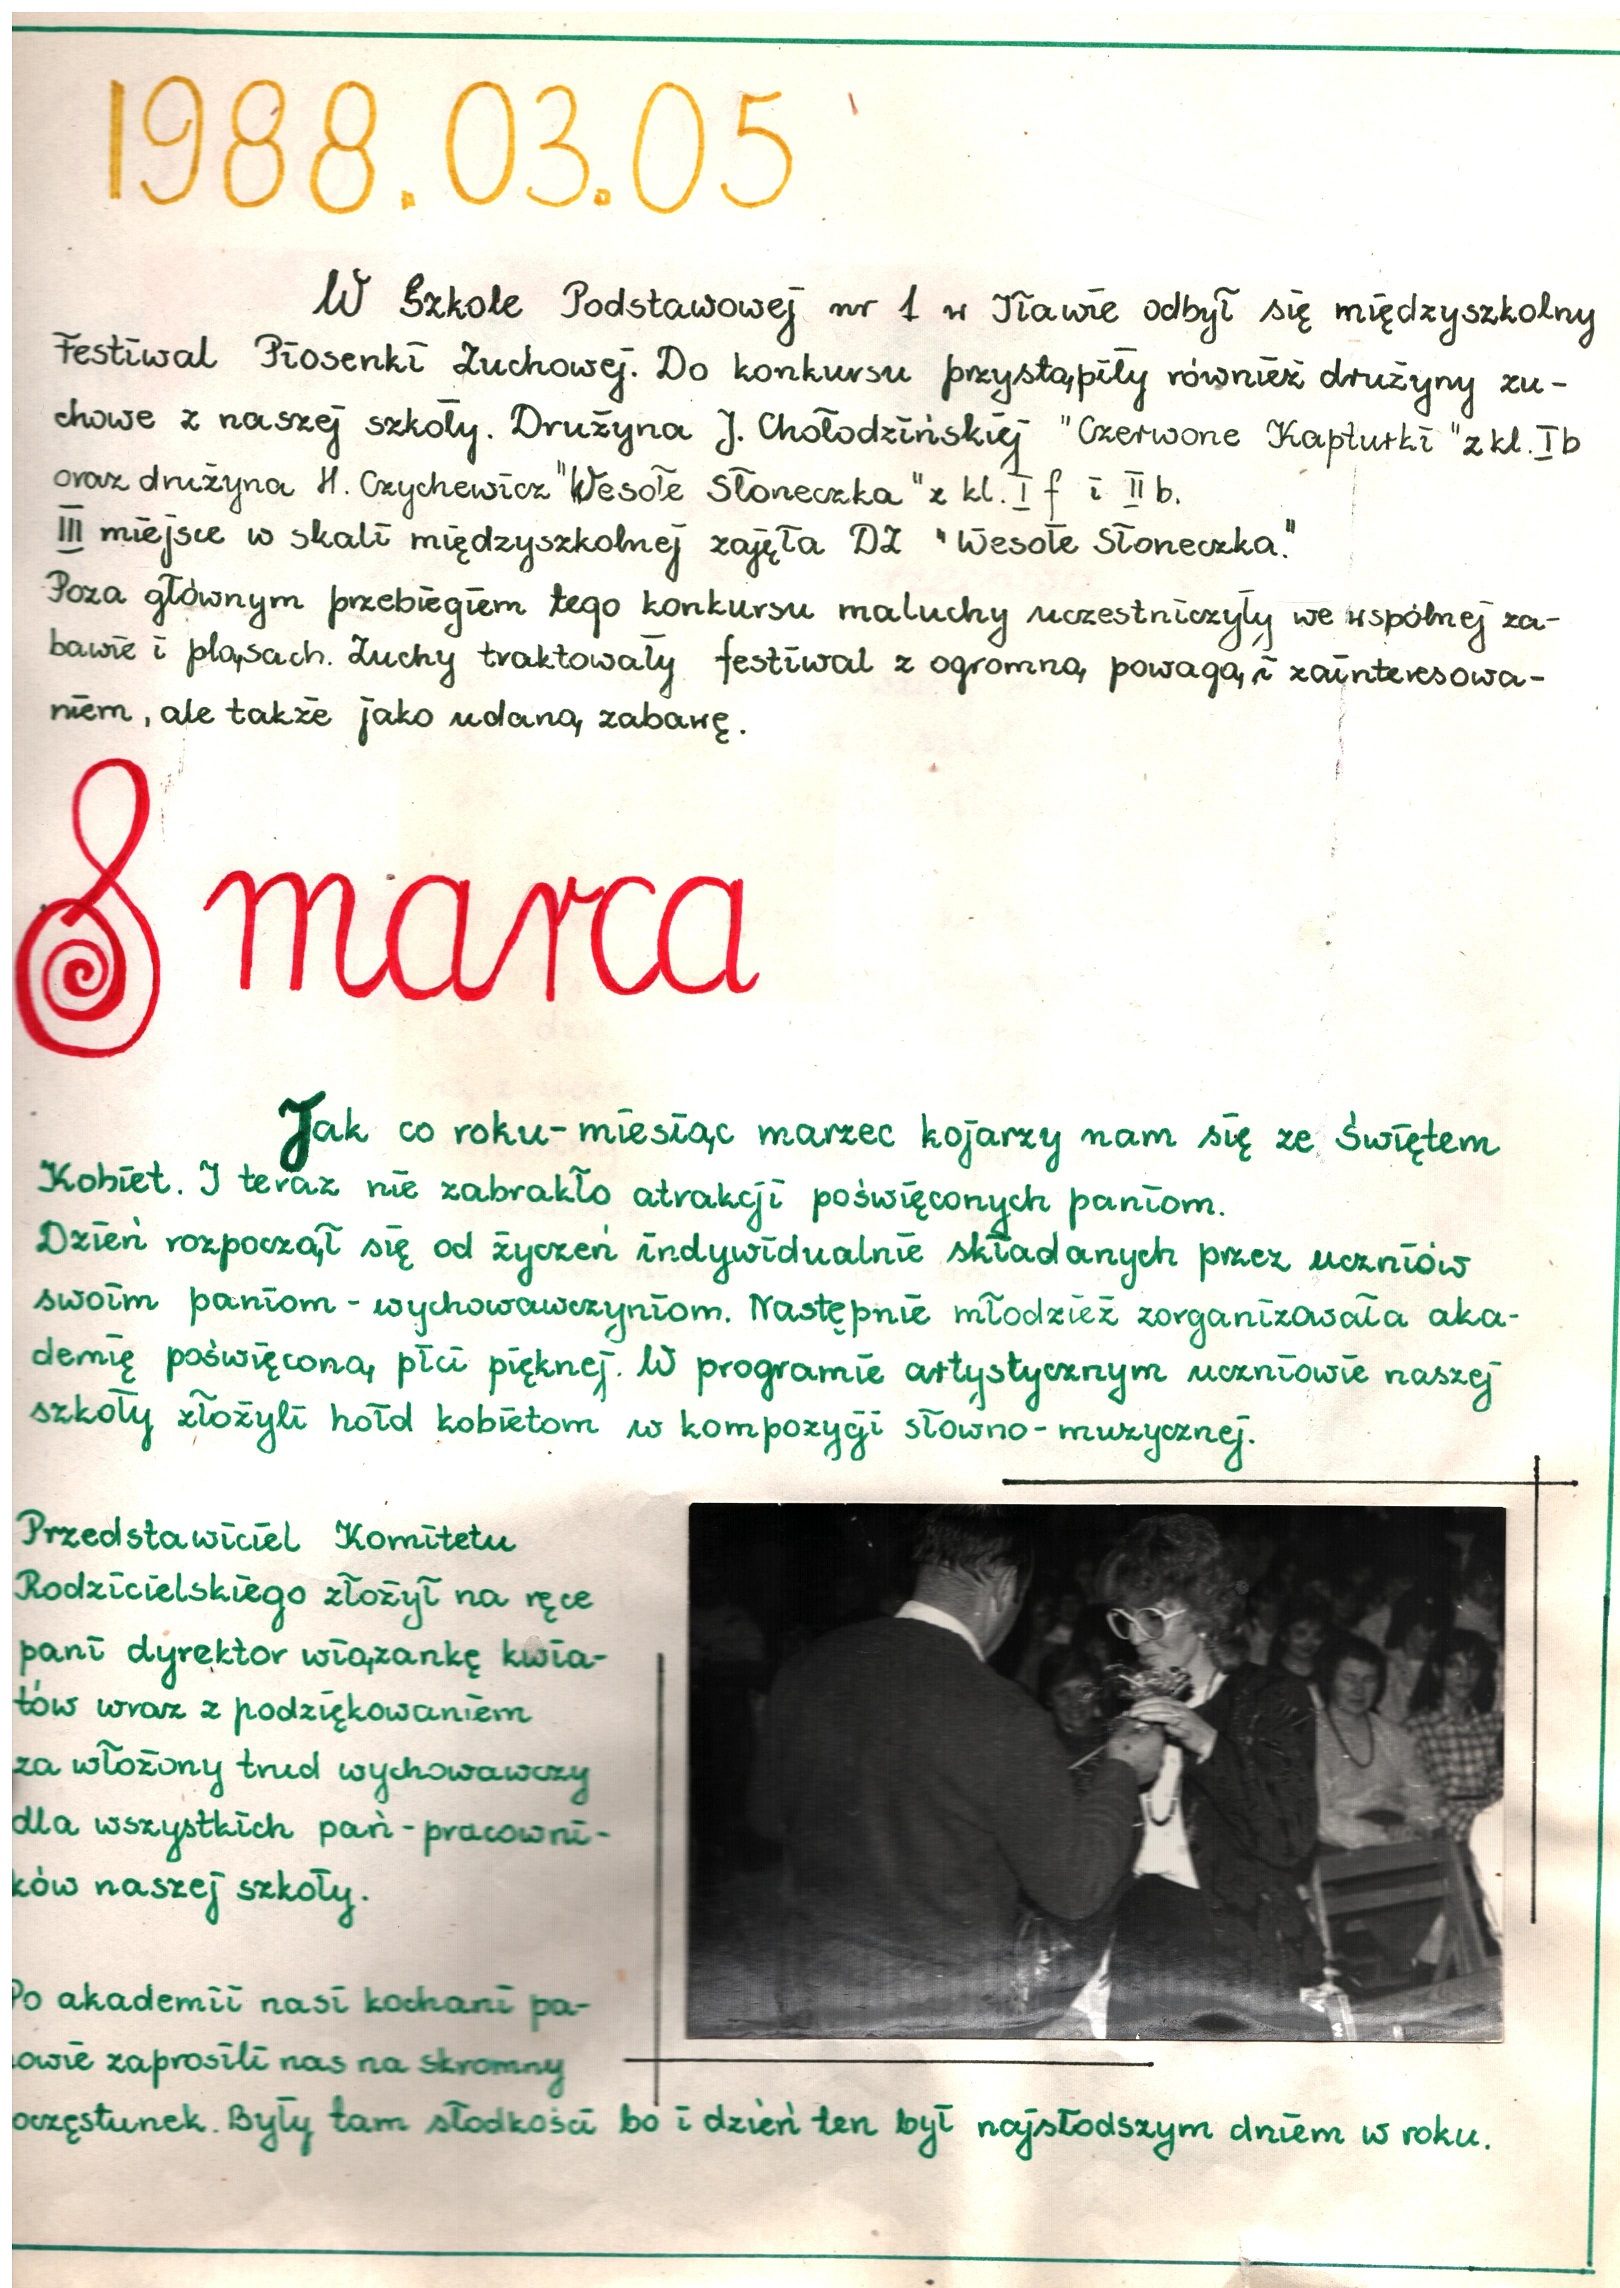 1988.03.05
W Szkole Podstawowej nr 1 w Iławie odbył się międzyszkolny
Festiwal Piosenki Zuchowej. Do konkursu przystąpiły również drużyny zu-
chowe z naszej szkoły. Drużyna J. Chołodzińskiej "Czerwone Kapturki" z kl. Ib
oraz drużyna H. Czychewicz "Wesołe Słoneczka" z kl. I f i II b.
III miejsce w skali międzyszkolnej zajęła DZ "Wesołe Słoneczka."
Poza głównym przebiegiem tego konkursu maluchy uczestniczyły we wspólnej za-
bawie i pląsach. Zuchy traktowały festiwal z ogromną powagą i zainteresowa-
niem, ale także jako udaną zabawę.
8 marca
Jak co roku - miesiąc marzec kojarzy nam się ze Świętem
Kobiet. I teraz nie zabrakło atrakcji poświęconych paniom.
Dzień rozpoczął się od życzeń indywidualnie składanych przez uczniów
swoim paniom - wychowawczyniom. Następnie młodzież zorganizowała aka-
demię poświęconą płci pięknej. W programie artystycznym uczniowie naszej
szkoły złożyli hołd kobietom w kompozycji słowno-muzycznej.
Przedstawiciel Komitetu
Rodzicielskiego złożył na ręce
pani dyrektor wiązankę kwia-
tów wraz z podziękowaniem
za włożony trud wychowawczy
dla wszystkich pań - pracowni-
ków naszej szkoły.
Po akademii nasi kochani pa-
owie zaprosili nas na skromny
oczęstunek. Były tam słodkości bo i dzień ten był najsłodszym dniem w roku.